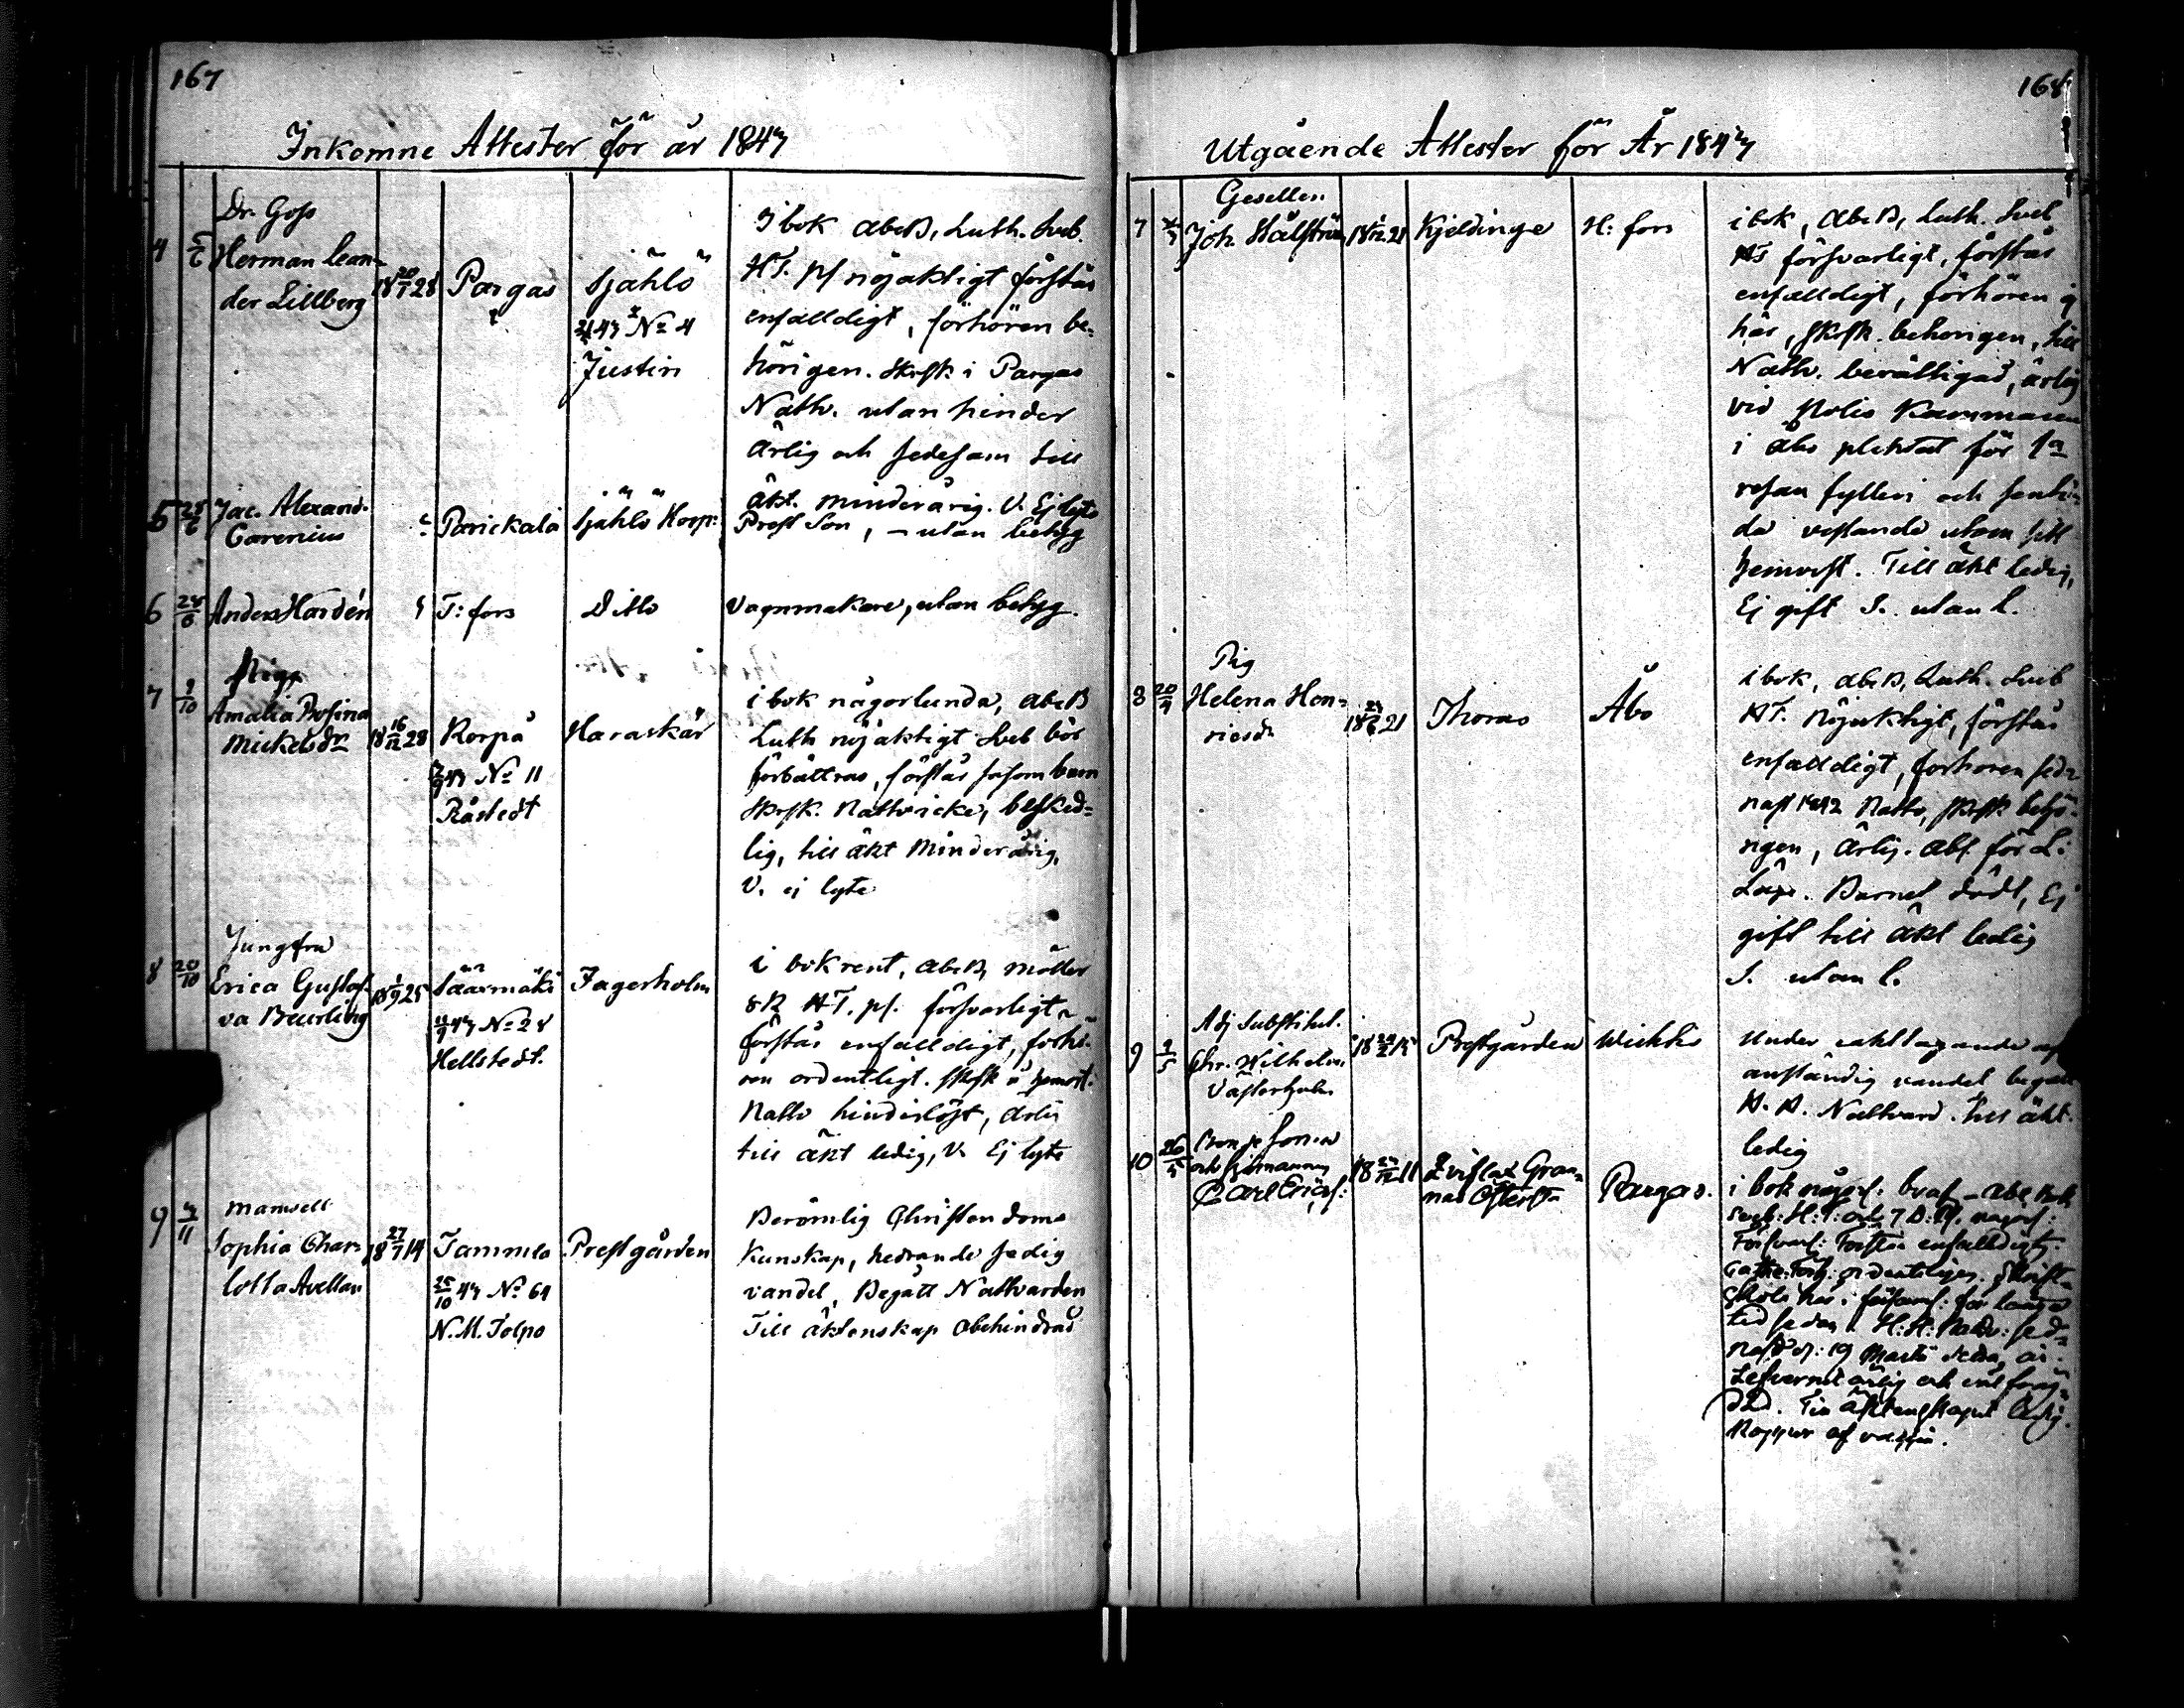 167
Inkomne Attester för år 1847
4 5/6 Dr. Goss
Herman Lean-
der Lillberg
18 20/1 28 Pargas
Själö
2/4 47 No 4
Justin
I bok AbcB, Luth. Sveb.
HT. ps nöjaktigt förstår
enfalldigt, förhören be-
hörigen. Skrsk. i Pargas
Nattv. utan hinder
Ärlig och sedesam till
äkt. minderårig. V. Ej lyte
5 28/6 Jac. Alexand.
Carenius
Parickala Själö Hosp:
Prest Son, – utan betyg
6 28/6 Anders Hardén T: fors Ditto Vagnmakare, utan betyg.
7 9/10 Piga
Amalia Rosina
Mickelsdr
18 16/12 28 Korpå Haraskär
47 No 11
Råstedt
i bok någorlunda, AbcB
Luth nöjaktigt Sveb bör
förbättras, förstår såsom barn
Skrsk. Nattvicke, besked-
lig, till äkt Minderårig,
V. ej lyte
8 20/10 Jungfru
Erica Gustaf-
va Beurling
18 1/9 25 Säärmäki Fagerholm
11/9 47 No 28
Hellstedt.
i bok rent, AbcB, möller
HT. ps. försvarligt
förstår enfalldigt, förhö-
ren ordentligt. Skrsk
Nattv hinderlöst, ärlig
till äkt ledig, V. Ej lyte
9 4/11 Mamsell
Sophia Char-
lotta Avellan
18 27/7 14 Jammelo Prestgården
25/10 47 No 61
N. M. Tolpo
Berömlig Christendoms
Kunskap, hedrande sedig
vandel, Begått Nattvarden
Till äktenskap obehindrad
168
Utgående Attester för År 1847
7 Gesellen
Joh. Stålström Kjeldinge H: fors
i bok, AbcB, Luth. Sveb
HT försvarligt, förstår
enfalldigt, förhören ej
här, skrsk. behörigen, till
Nattv. berättigad, ärlig
vid Polis Kammaren
i Åbo pliktat för 1a
resan fylleri och
vistande utom sitt
hemvist. Till äkt ledig,
Ej gift S. utan l.
8 20/4 Pig
Helena Hen-
ricsdr
21 Thomas Åbo
i bok, AbcB, Luth. Sveb
HT. Nöjaktigt, förstår
enfalldigt, förhören sed-
nast 1842 Nattv, skrsk behö-
rigen, ärlig. Abs. för L.
Läge. Barnet dödt, Ej
gift till äkt ledig
S. utan l.
9 2/5 Adj Substitut.
Chr. Wilhelm.
Västerholm
Prestgården Wichtis
Under iakttagande af
anständig vandel begått
H. H. Nattvard. till äkt.
ledig
10 26/5 Bonde sonen
och Sjömannen
Carl Ericss:
18 27/12 11
Pargas.
i bok någorl: braf – Abc Bok
Sveb: H:T: och 7 B: Ps. någorl:
Försvarl: Förstår enfalldigt.
ordentligen.
tid sedan. H:H: Nattv: sed-
nast d: 19 Martii detta år.
Lefvernet ärlig och väl
ledig.
Koppor af vaccin.